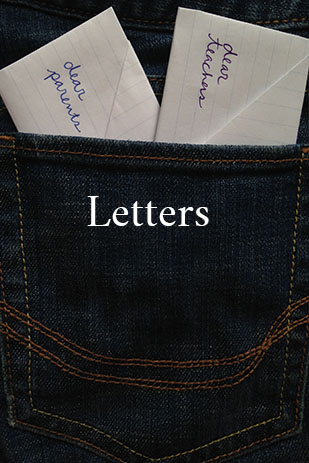 dear
parents
dear
teachers
Letters